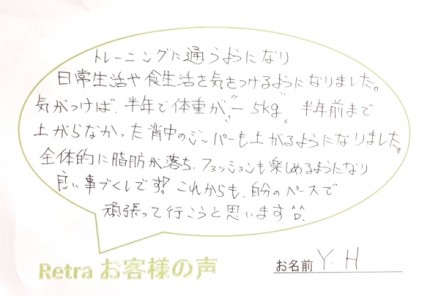 トレーニングに通うようになり
日常生活や食生活を気をつけるようになりました。
気がつけば、半年で体重が"－5kg"。半年前まで
上がらなかった背中のジッパーも上がるようになりました。
全体的に脂肪が落ち、ファッションも楽しめるようになり
良い事づくしです!! これからも、自分のペースで
頑張って行こうと思います^^。
Retra お客様の声
お名前 Y. H